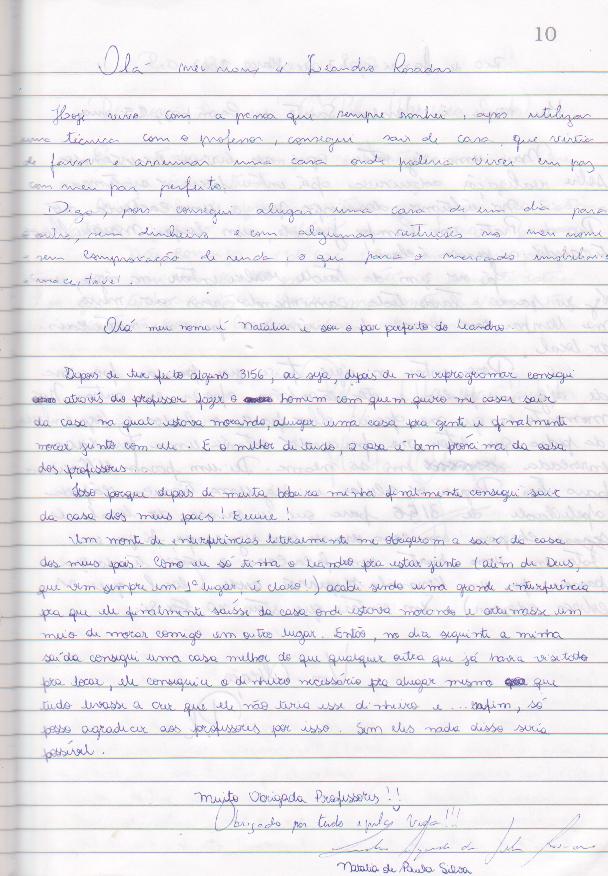 10
Olá meu nome é Leandro Rosadas
Hoje vivo com a pessoa que sempre sonhei, após utilizar
uma técnica com o professor, consegui sair de casa, que vivia
de favor e arrumar uma casa onde poderia viver em paz
com meu par perfeito.
Digo, pois consegui alugar uma casa de um dia para
o outro, sem dinheiro e com algumas restrições no meu nome
sem comprovação de renda, o que para o mercado imobiliário
Olá meu nome é Natalia e sou o par perfeito do Leandro.
Depois de ter feito alguns 3156, ou seja, depois de me reprogramar consegui
através do professor fazer o homem com quem quero me casar sair
da casa na qual estava morando, alugar uma casa pra gente e finalmente
morar junto com ele. E o melhor de tudo, a casa é bem próxima da casa
dos professores.
Isso porque depois de muita bobura minha finalmente consegui sair
da casa dos meus pais! Eeeeee!
Um monte de interferências literalmente me obrigaram a sair da casa
dos meus pais. Como eu só tinha o Leandro pra estar junto (além de Deus,
que vem sempre em 1º lugar é claro!) acabei sendo uma grande interferência
pra que ele finalmente saísse da casa onde estava morando e arrumasse um
meio de morar comigo em outro lugar. Então, no dia seguinte a minha
saída consegui uma casa melhor do que qualquer outra que já havia visitado
pra locar, ele conseguiu o dinheiro necessário pra alugar mesmo que
tudo levasse a crer que ele não teria esse dinheiro e ... enfim, só
posso agradecer aos professores por isso. Sem eles nada disso seria
possível.
Muito Obrigada Professores!!
Obrigado por tudo e pela Vida!!!
Natalia de Paula Silva